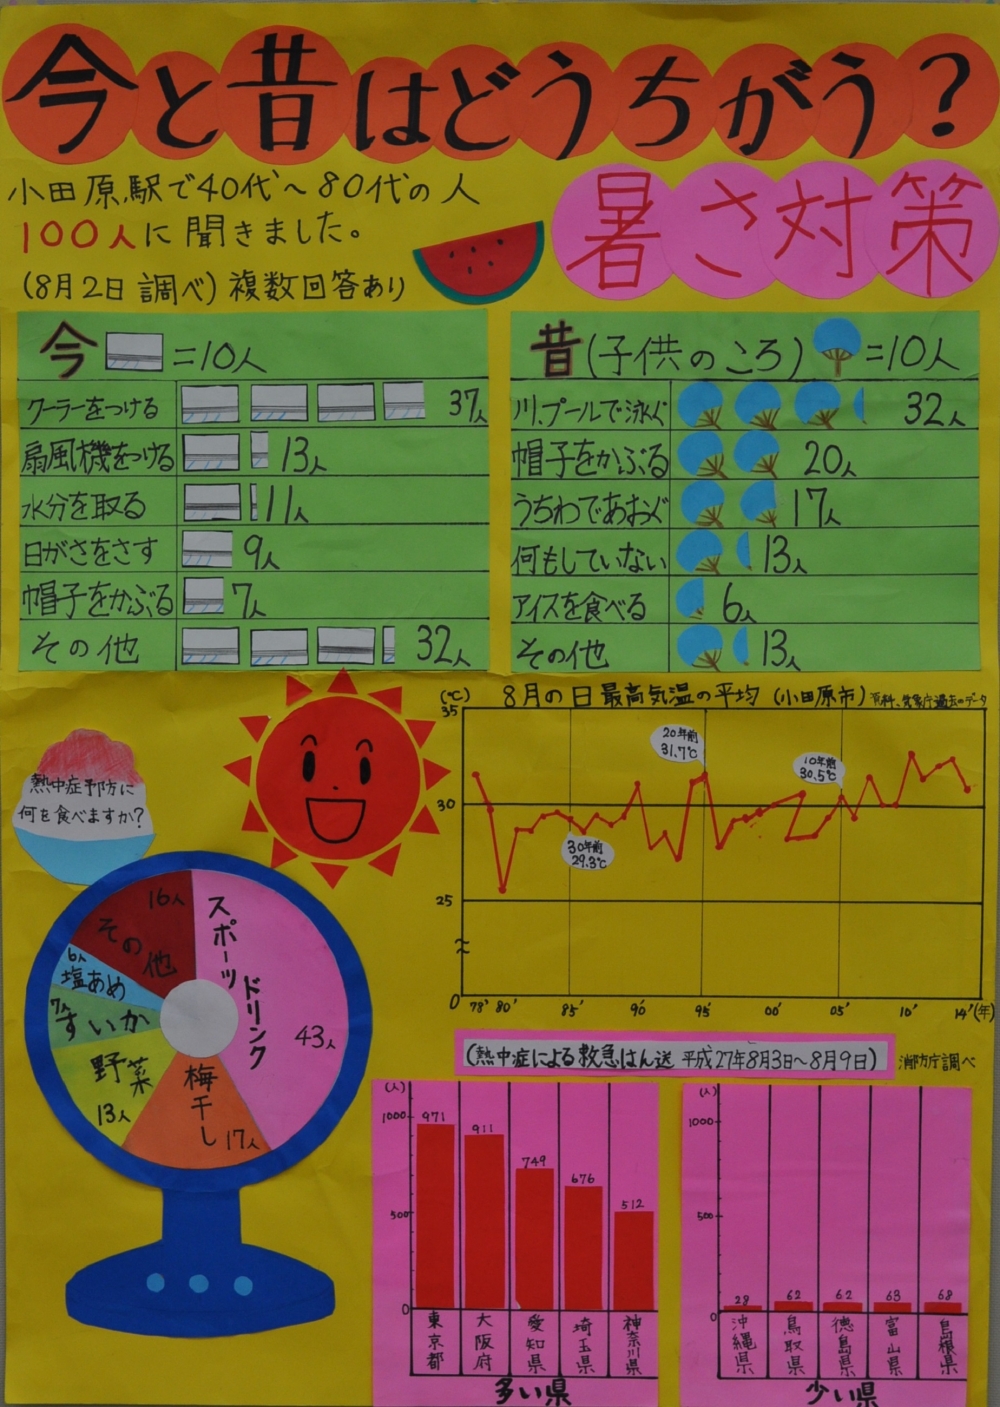 今と昔はどうちがう?
暑さ対策
小田原駅で40代~80代の人
100人に聞きました。
(8月2日調べ)複数回答あり
今 =10人
クーラーをつける 37人
扇風機をつける 13人
水分を取る 11人
日がさをさす 9人
帽子をかぶる 7人
その他 32人
昔(子供のころ) =10人
川、プールで泳ぐ 32人
帽子をかぶる 20人
うちわであおぐ 17人
何もしていない 13人
アイスを食べる 6人
その他 13人
熱中症予防に
何を食べますか?
スポーツドリンク 43人
梅干し 17人
野菜 13人
すいか 7人
塩あめ 6人
その他 16人
8月の日最高気温の平均 (小田原市) 資料、気象庁過去のデータ
(℃)
35
30
25
0
20年前
31.7℃
10年前
30.5℃
30年前
29.3℃
78' 80' 85' 90' 95' 00' 05' 10' 14'(年)
(熱中症による救急はん送 平成27年8月3日~8月9日) 消防庁調べ
(人)
1000
500
0
971 911 749 676 512
東京都 大阪府 愛知県 埼玉県 神奈川県
多い県
(人)
1000
500
0
28 62 62 63 68
沖縄県 鳥取県 徳島県 富山県 島根県
少い県